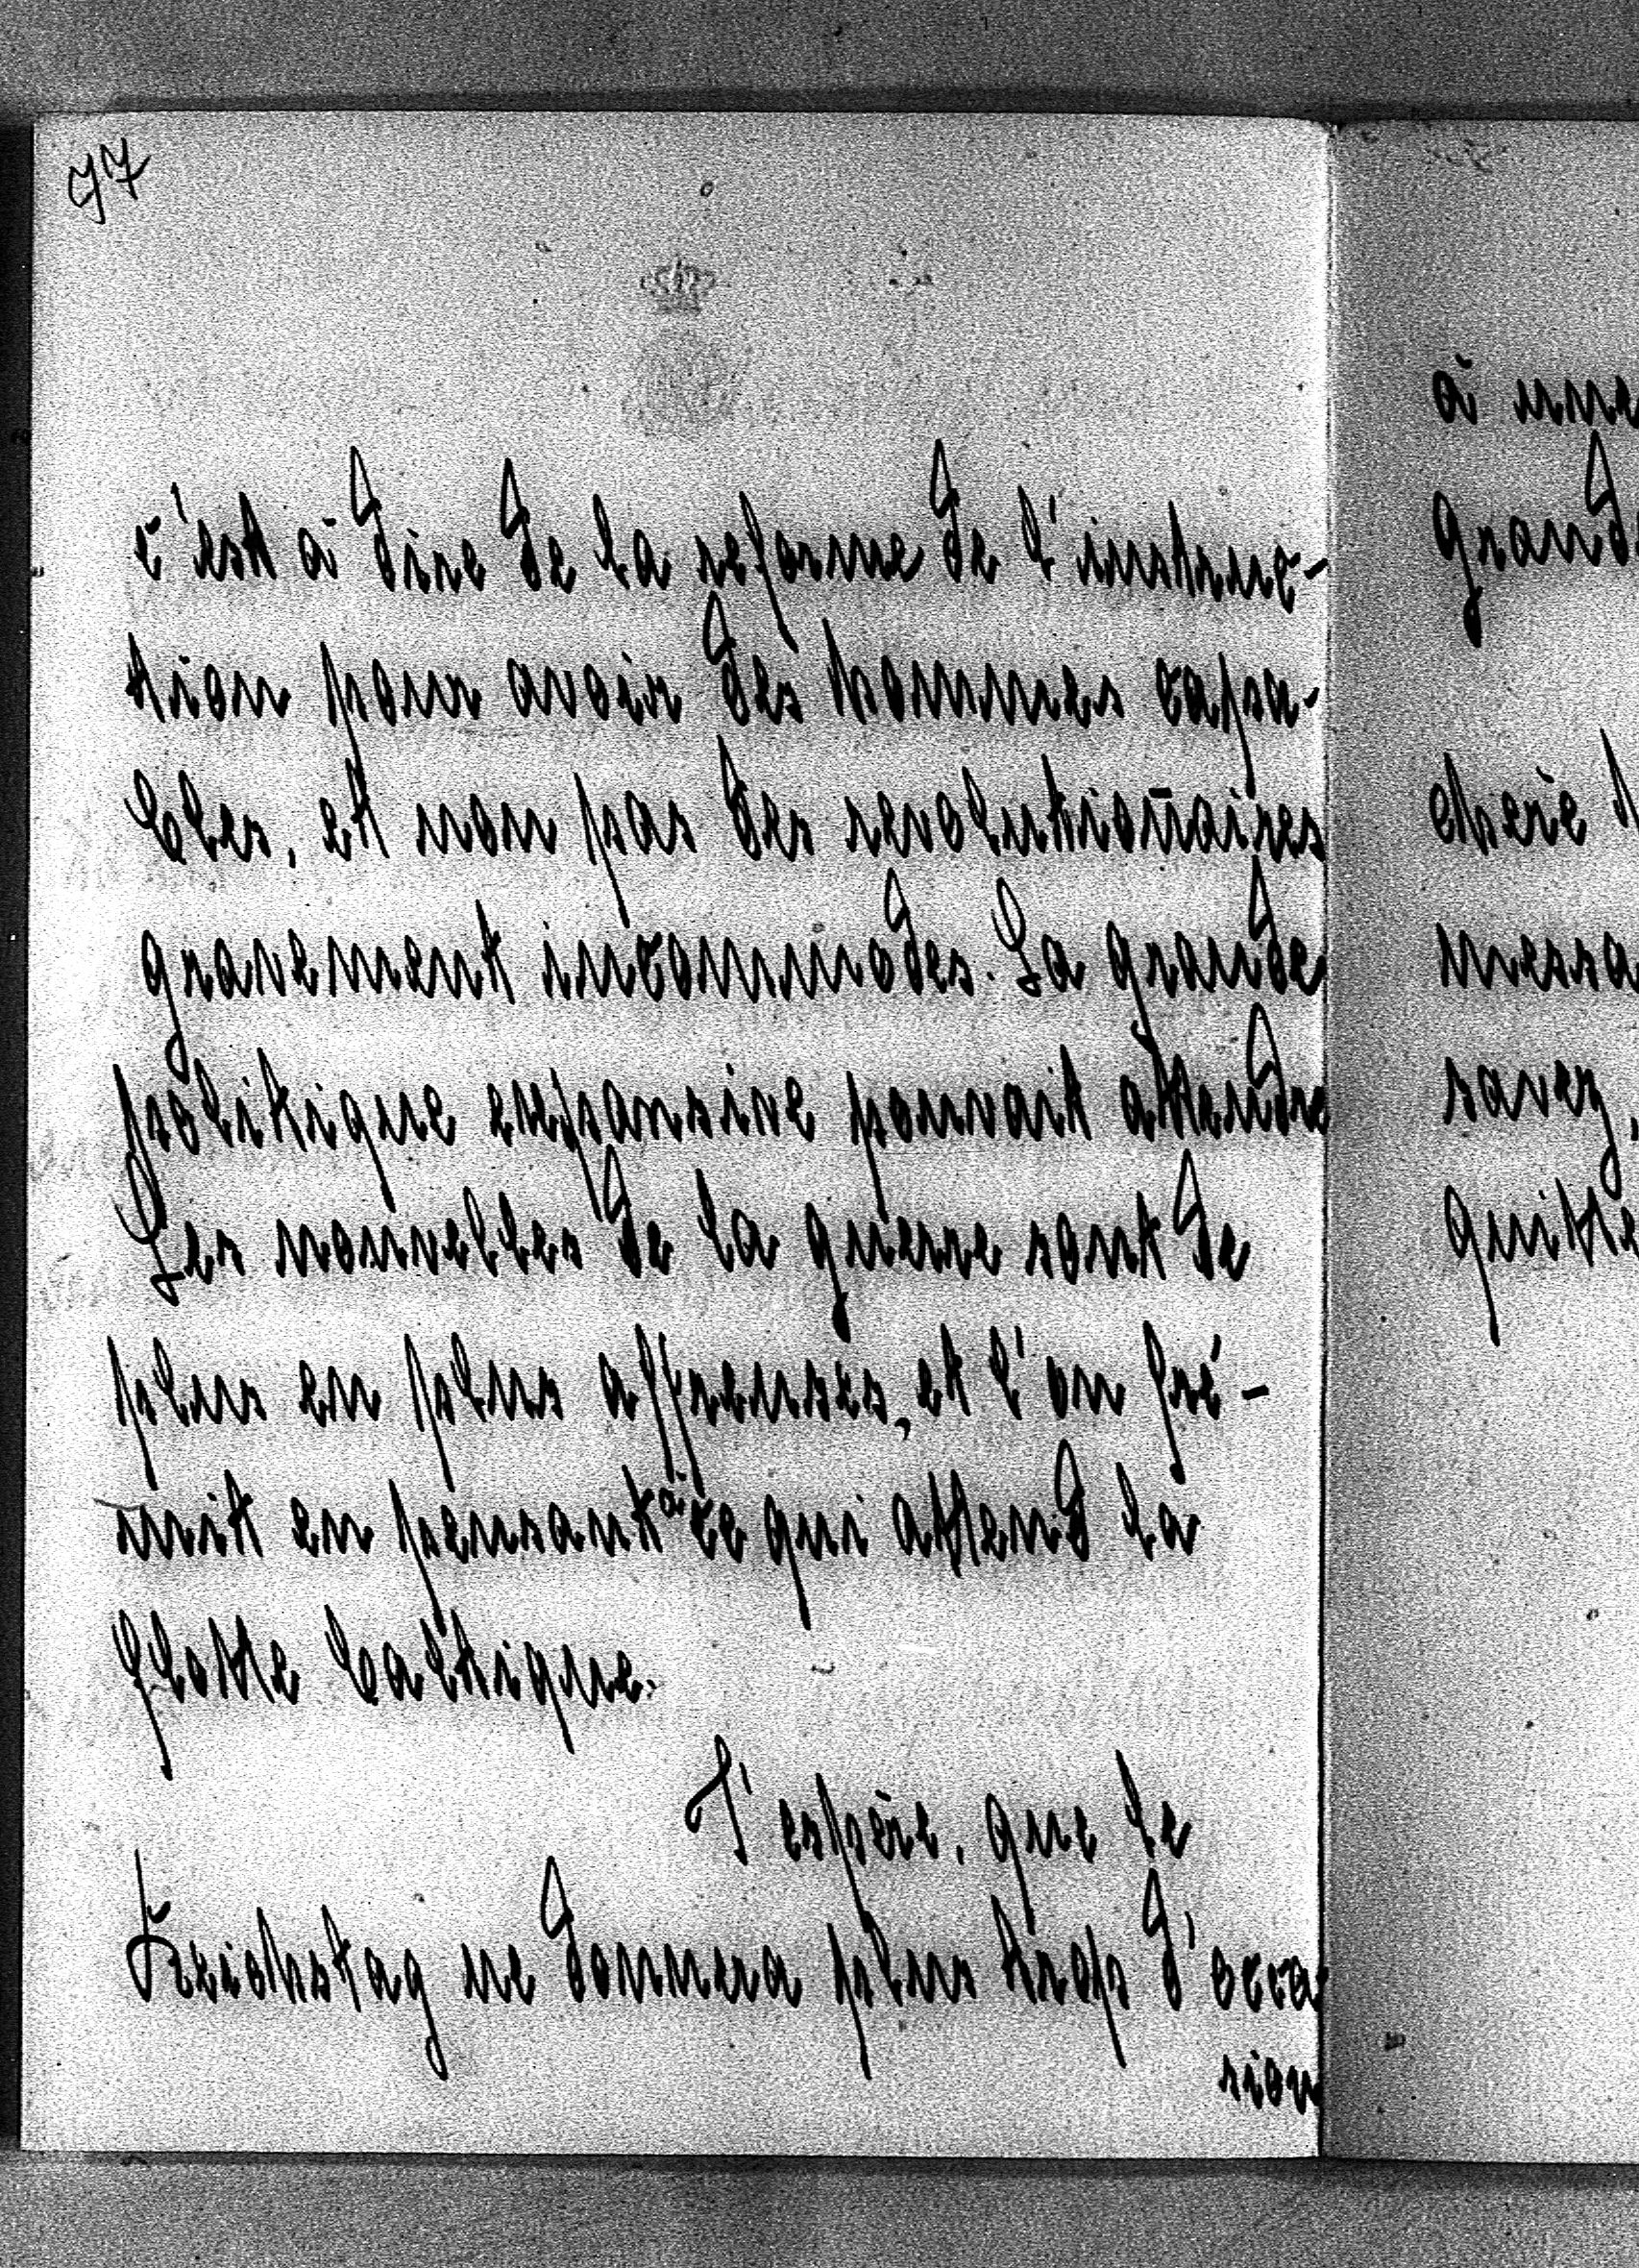 77
c'est à dire de la reforme de l'instruc-
tion pour avoir des hommes capa-
bles, et non pas des revolutionaires
gravement incommodes. La grande
politique expansive pouvait attendre
Les nouvelles de la guerre sont de
plus en plus affreuses, et l'on fré-
mit en pensant à ce qui attend la
flotte baltique.
J'espère, que le
Reichstag ne donnera plus trop d'occa-
sion
à une
grand
messa
savez,
quitte